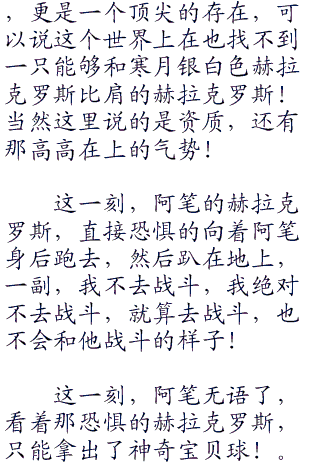 ，更是一个顶尖的存在，可
以说这个世界上在也找不到
一只能够和寒月银白色赫拉
克罗斯比肩的赫拉克罗斯！
当然这里说的是资质，还有
那高高在上的气势！
这一刻，阿笔的赫拉克
罗斯，直接恐惧的向着阿笔
身后跑去，然后趴在地上，
一副，我不去战斗，我绝对
不去战斗，就算去战斗，也
不会和他战斗的样子！
这一刻，阿笔无语了，
看着那恐惧的赫拉克罗斯，
只能拿出了神奇宝贝球！。